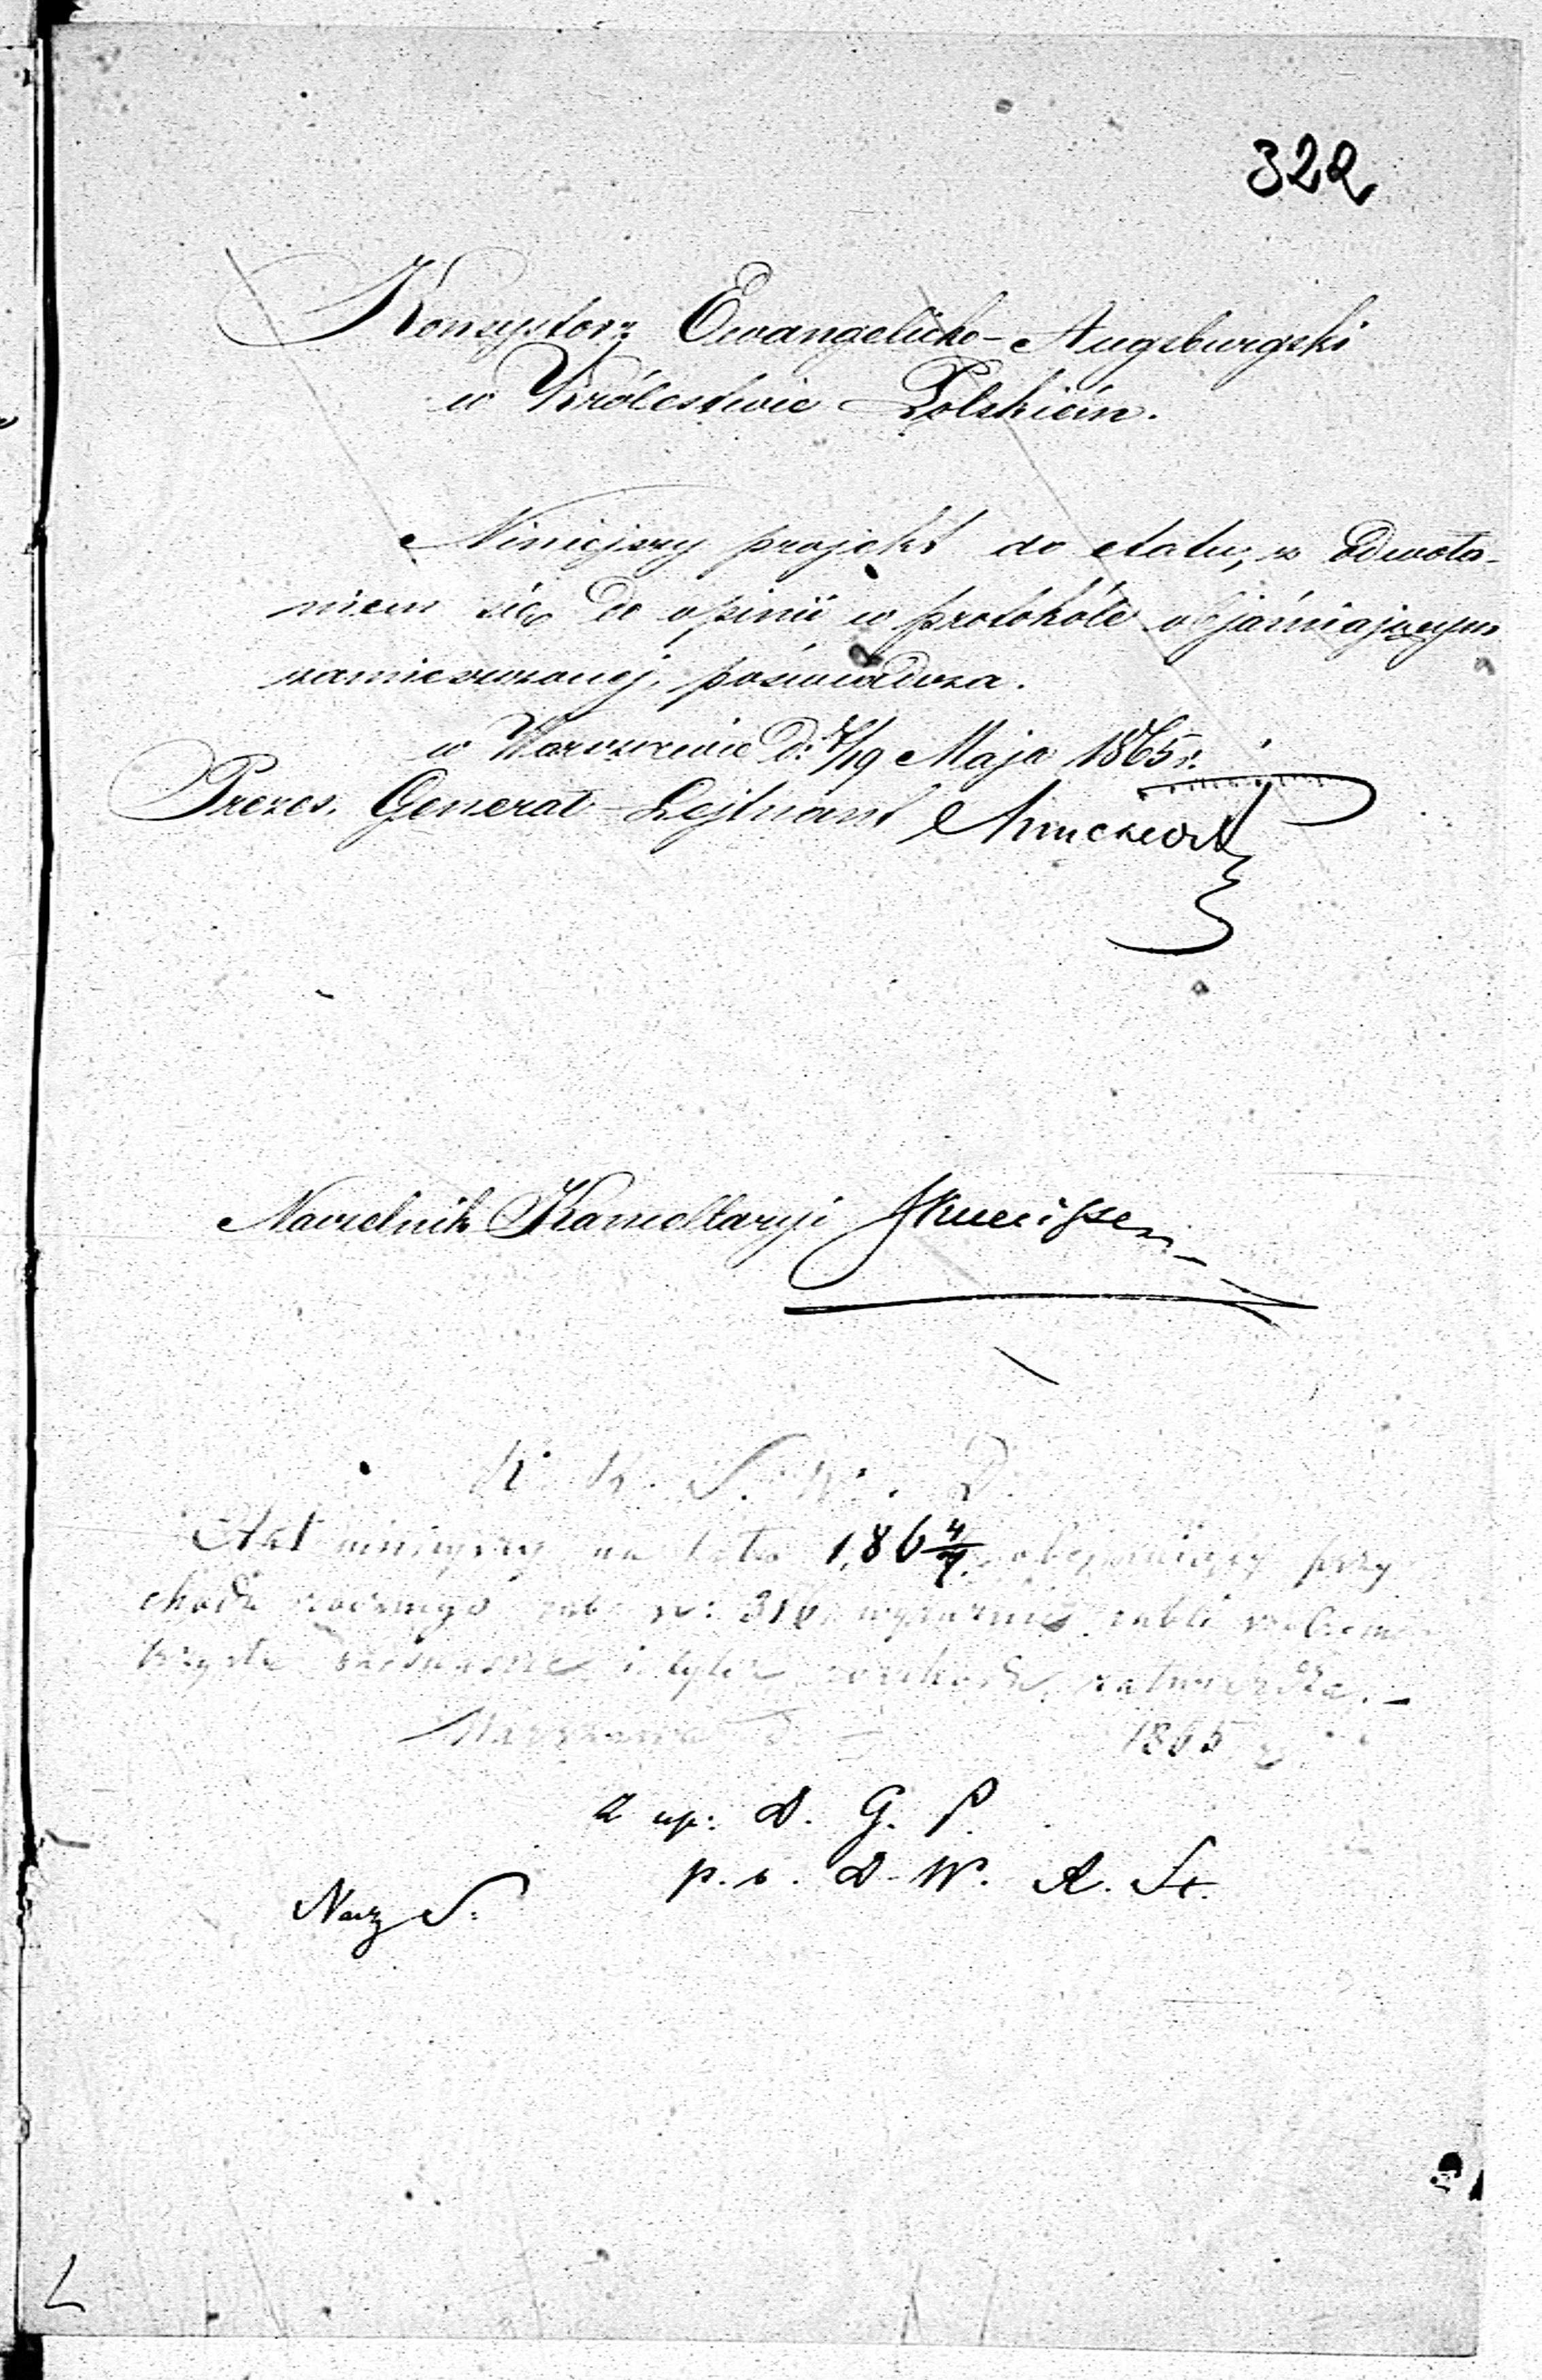 322
Konsystorz Ewangelicko-Augsburgski
w Królestwie Polskiém.
Niniejszy projekt do etatu, z odwoła-
niem się do opinii w protokóle objaśniającym
zamieszczonej, poświadcza.
w Warszawie d: 7/19 Maja 1865 r.
Prezes, Generał-Lejtnant
Naczelnik Kancellaryi
K. R. S. W. D.
Etat niniejszy na lata 1864/9 obejmujący przy
chodu rocznego rub: sr: 316, wyraźnie rubli srebrem
trzysta szesnaście i tyleż rozchodu, zatwierdza.
Warszawa d. 1865 r.
z up: D. G. P.
p. o. D. W. A. St.
Nacz S: